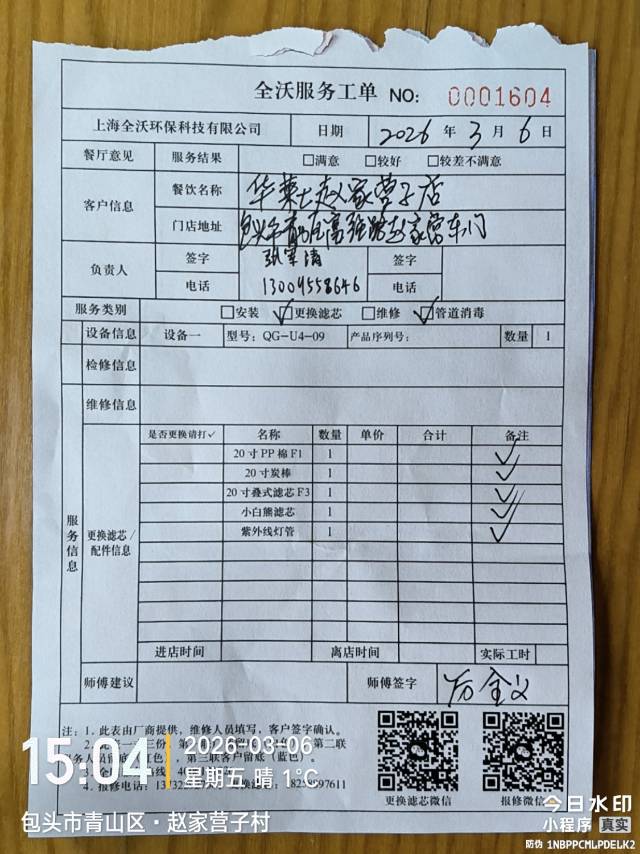 全沃服务工单 NO: 0001604
上海全沃环保科技有限公司 日期 2026 年 3 月 6 日
餐厅意见 服务结果 □满意 □较好 □较差不满意
客户信息 餐饮名称 华莱士赵家营子店
门店地址 包头市青山区富强路赵家营车门
负责人 签字 签字
电话 13009558646 电话
服务类别 □安装 ☑更换滤芯 □维修 ☑管道消毒
设备信息 设备一 型号: QG-U4-09 产品序列号: 数量 1
检修信息
维修信息
服务信息 更换滤芯/配件信息
是否更换请打✓ 名称 数量 单价 合计 备注
20寸PP棉F1 1 ✓
20寸炭棒 1 ✓
20寸叠式滤芯F3 1 ✓
小白熊滤芯 1 ✓
紫外线灯管 1 ✓
进店时间 离店时间 实际工时
师傅建议 师傅签字
注: 1. 此表由厂商提供, 维修人员填写, 客户签字确认。
第二联
第三联客户留底(蓝色)。
4. 报修电话:
更换滤芯微信 报修微信
15:04 2026-03-06
星期五 晴 1°C
包头市青山区·赵家营子村
今日水印
小程序 真实
防伪 1NBPPCMLPDELK2